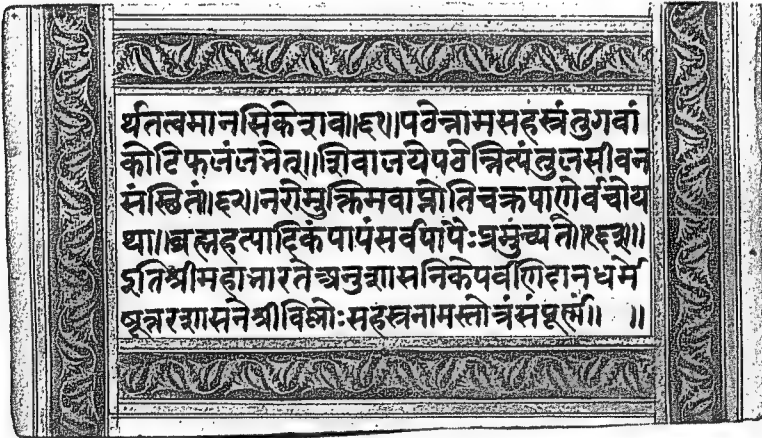 र्थतत्वमानसिकेशव॥६१॥पठेन्नामसहस्रंतुगवां
कोटिफलंलभेत्॥शिवालयेपठेन्नित्यंतुलसीवन
संस्थितं॥६२॥नरोमुक्तिमवाप्नोतिचक्रपाणेर्वचोय
था॥ब्रह्महत्यादिकंपापंसर्वपापैःप्रमुच्यते॥१६३॥
इतिश्रीमहाभारतेअनुशासनिकेपर्वणिदानधर्मे
षूत्तरशासनेश्रीविष्णोःसहस्रनामस्तोत्रंसंपूर्णं॥ ॥